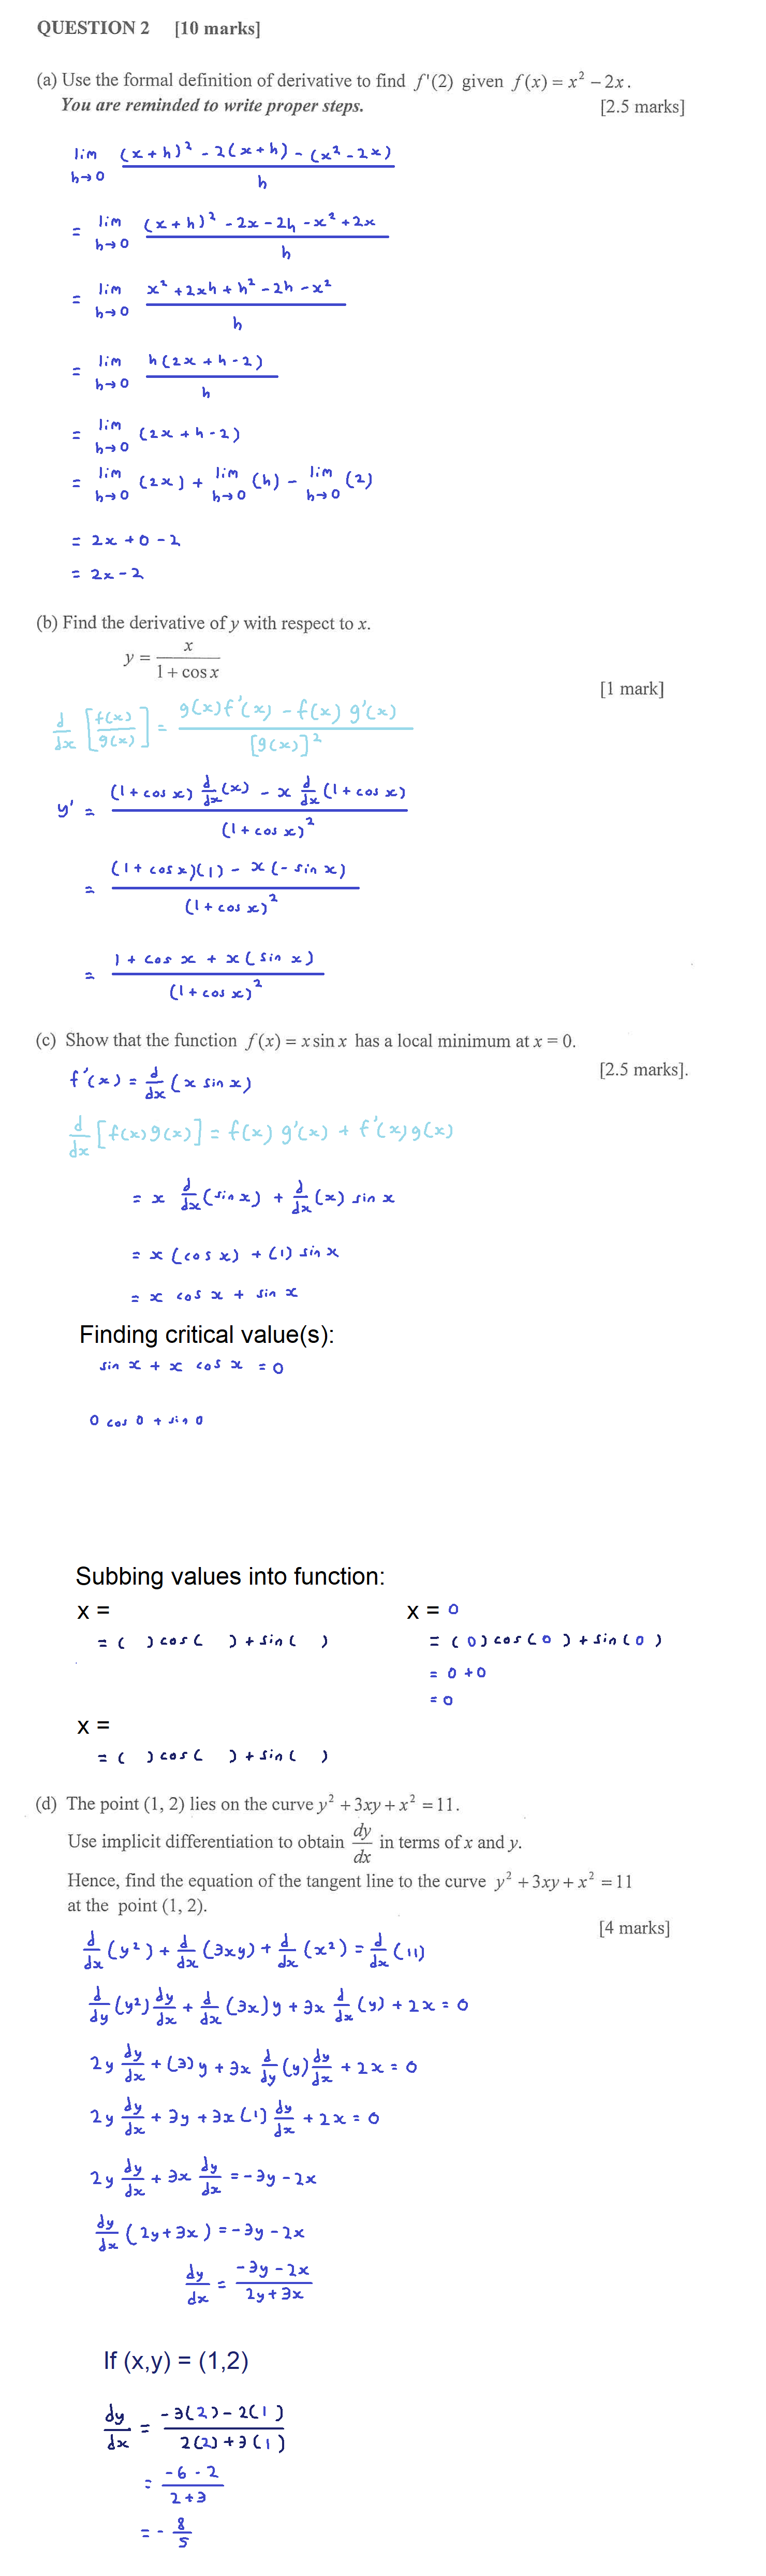 QUESTION 2 [10 marks]
(a) Use the formal definition of derivative to find f'(2) given f(x) = x² − 2x.
You are reminded to write proper steps. [2.5 marks]
lim h→0 ((x+h)² - 2(x+h) - (x² - 2x)) / h
= lim h→0 ((x+h)² - 2x - 2h - x² + 2x) / h
= lim h→0 (x² + 2xh + h² - 2h - x²) / h
= lim h→0 h(2x + h - 2) / h
= lim h→0 (2x + h - 2)
= lim h→0 (2x) + lim h→0 (h) - lim h→0 (2)
= 2x + 0 - 2
= 2x - 2
(b) Find the derivative of y with respect to x.
y = x / (1 + cos x)
[1 mark]
d/dx [f(x)/g(x)] = (g(x)f'(x) - f(x)g'(x)) / [g(x)]²
y' = ((1 + cos x) d/dx (x) - x d/dx (1 + cos x)) / (1 + cos x)²
= ((1 + cos x)(1) - x(- sin x)) / (1 + cos x)²
= (1 + cos x + x(sin x)) / (1 + cos x)²
(c) Show that the function f(x) = x sin x has a local minimum at x = 0.
[2.5 marks].
f'(x) = d/dx (x sin x)
d/dx [f(x)g(x)] = f(x) g'(x) + f'(x)g(x)
= x d/dx (sin x) + d/dx (x) sin x
= x (cos x) + (1) sin x
= x cos x + sin x
Finding critical value(s):
sin x + x cos x = 0
0 cos 0 + sin 0
Subbing values into function:
x = 
= ( ) cos ( ) + sin ( )
x = 0
= (0) cos (0) + sin (0)
= 0 + 0
= 0
x =
= ( ) cos ( ) + sin ( )
(d) The point (1, 2) lies on the curve y² + 3xy + x² = 11.
Use implicit differentiation to obtain dy/dx in terms of x and y.
Hence, find the equation of the tangent line to the curve y² + 3xy + x² = 11
at the point (1, 2).
[4 marks]
d/dx (y²) + d/dx (3xy) + d/dx (x²) = d/dx (11)
d/dy (y²) dy/dx + d/dx (3x)y + 3x d/dx (y) + 2x = 0
2y dy/dx + (3)y + 3x d/dy (y) dy/dx + 2x = 0
2y dy/dx + 3y + 3x (1) dy/dx + 2x = 0
2y dy/dx + 3x dy/dx = -3y - 2x
dy/dx (2y + 3x) = -3y - 2x
dy/dx = (-3y - 2x) / (2y + 3x)
If (x,y) = (1,2)
dy/dx = (-3(2) - 2(1)) / (2(2) + 3(1))
= (-6 - 2) / (2 + 3)
= - 8/5